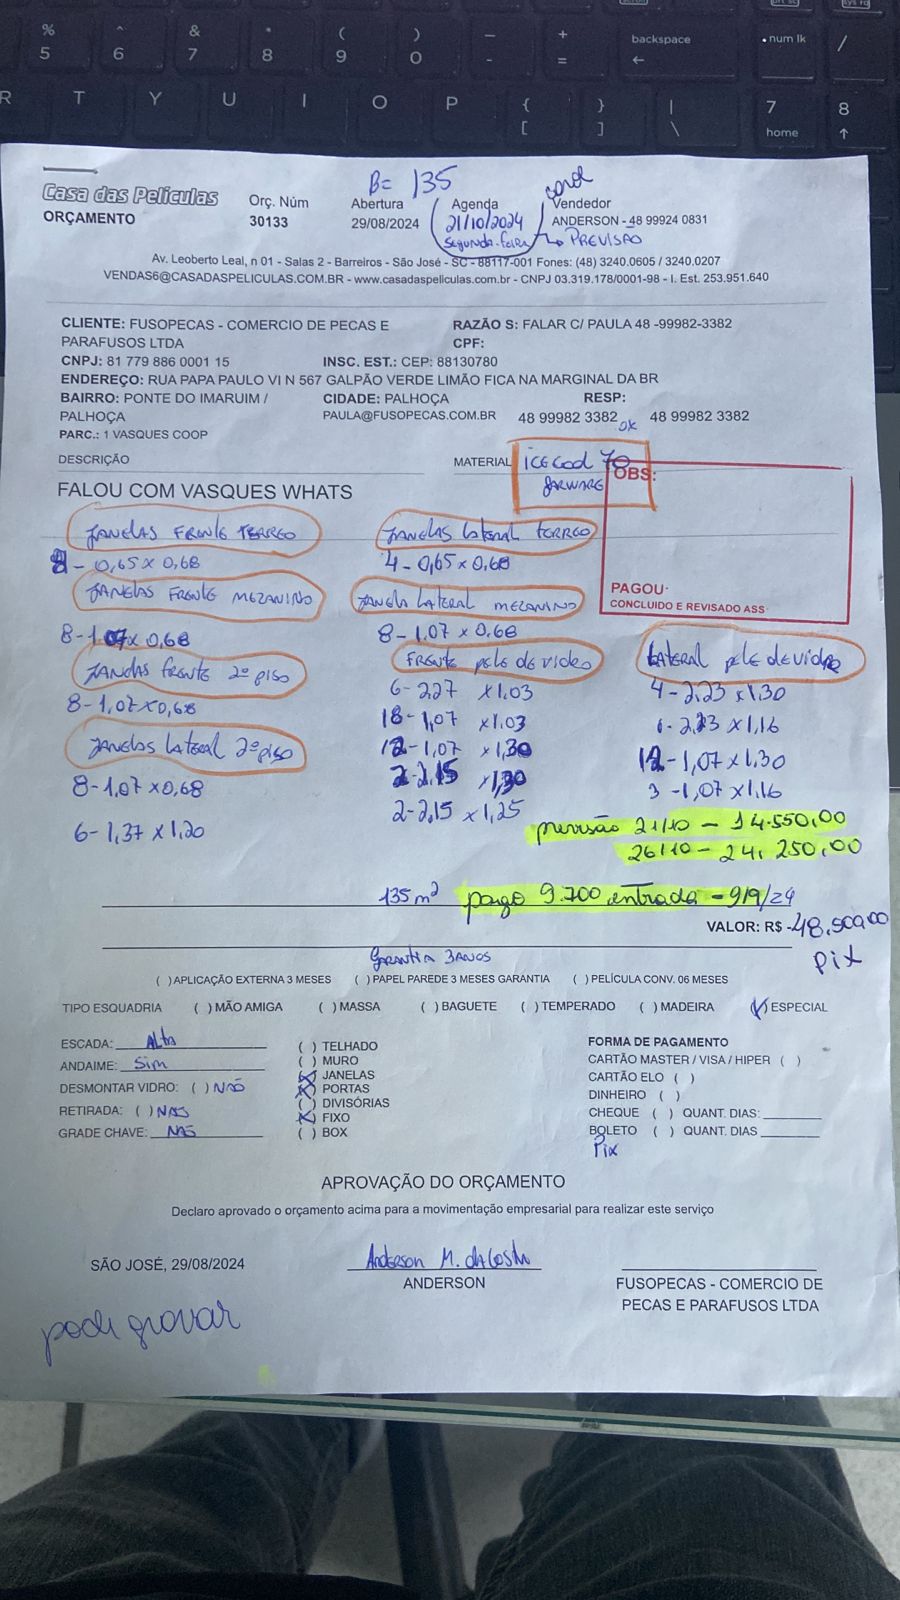 % 5 ^ 6 & 7 * 8 ( 9 ) 0 _ - + = backspace num lk /
R T Y U I O P { [ } ] | \ 7 home 8
B= 135
Casa das Películas
ORÇAMENTO
Orç. Núm
30133
Abertura
29/08/2024
Agenda
21/10/2024
Segunda-feira
PREVISÃO
Vendedor
ANDERSON - 48 99924 0831
Av. Leoberto Leal, n 01 - Salas 2 - Barreiros - São José - SC - 88117-001 Fones: (48) 3240.0605 / 3240.0207
VENDAS6@CASADASPELICULAS.COM.BR - www.casadaspeliculas.com.br - CNPJ 03.319.178/0001-98 - I. Est. 253.951.640
CLIENTE: FUSOPECAS - COMERCIO DE PECAS E PARAFUSOS LTDA
RAZÃO S: FALAR C/ PAULA 48 -99982-3382
CPF:
CNPJ: 81 779 886 0001 15
INSC. EST.: CEP: 88130780
ENDEREÇO: RUA PAPA PAULO VI N 567 GALPÃO VERDE LIMÃO FICA NA MARGINAL DA BR
BAIRRO: PONTE DO IMARUIM / PALHOÇA
CIDADE: PALHOÇA
RESP:
PAULA@FUSOPECAS.COM.BR 48 99982 3382 ok 48 99982 3382
PARC.: 1 VASQUES COOP
DESCRIÇÃO
MATERIAL icecool 70
garware
OBS:
FALOU COM VASQUES WHATS
PAGOU:
CONCLUIDO E REVISADO ASS
JANELAS FRENTE TERREO
8 - 0,65 x 0,68
JANELAS FRENTE MEZANINO
8 - 1,07 x 0,68
JANELAS FRENTE 2º PISO
8 - 1,07 x 0,68
JANELAS LATERAL 2º PISO
8 - 1,07 x 0,68
6 - 1,37 x 1,20
JANELAS LATERAL TERREO
4 - 0,65 x 0,68
JANELA LATERAL MEZANINO
8 - 1.07 x 0.68
FRENTE PELE DE VIDRO
6 - 2,27 x 1.03
18 - 1,07 x 1.03
12 - 1,07 x 1,30
2 - 2,15 x 1,30
2 - 2,15 x 1,25
LATERAL PELE DE VIDRO
4 - 2.23 x 1.30
1 - 2.23 x 1,16
12 - 1,07 x 1.30
3 - 1,07 x 1.16
previsão 21/10 - 14.550,00
26/10 - 24.250,00
135 m² pago 9.700 entrada - 9/9/24
VALOR: R$ -48.500,00
Pix
Garantia 3 anos
( ) APLICAÇÃO EXTERNA 3 MESES ( ) PAPEL PAREDE 3 MESES GARANTIA ( ) PELÍCULA CONV. 06 MESES
TIPO ESQUADRIA ( ) MÃO AMIGA ( ) MASSA ( ) BAGUETE ( ) TEMPERADO ( ) MADEIRA (X) ESPECIAL
ESCADA: Alta
ANDAIME: Sim
DESMONTAR VIDRO: ( ) NÃO
RETIRADA: ( ) NAO
GRADE CHAVE: NÃO
( ) TELHADO
( ) MURO
(X) JANELAS
(X) PORTAS
( ) DIVISÓRIAS
(X) FIXO
( ) BOX
FORMA DE PAGAMENTO
CARTÃO MASTER / VISA / HIPER ( )
CARTÃO ELO ( )
DINHEIRO ( )
CHEQUE ( ) QUANT. DIAS:
BOLETO ( ) QUANT. DIAS
Pix
APROVAÇÃO DO ORÇAMENTO
Declaro aprovado o orçamento acima para a movimentação empresarial para realizar este serviço
SÃO JOSÉ, 29/08/2024
Anderson M. da Costa
ANDERSON
FUSOPECAS - COMERCIO DE PECAS E PARAFUSOS LTDA
pode gravar